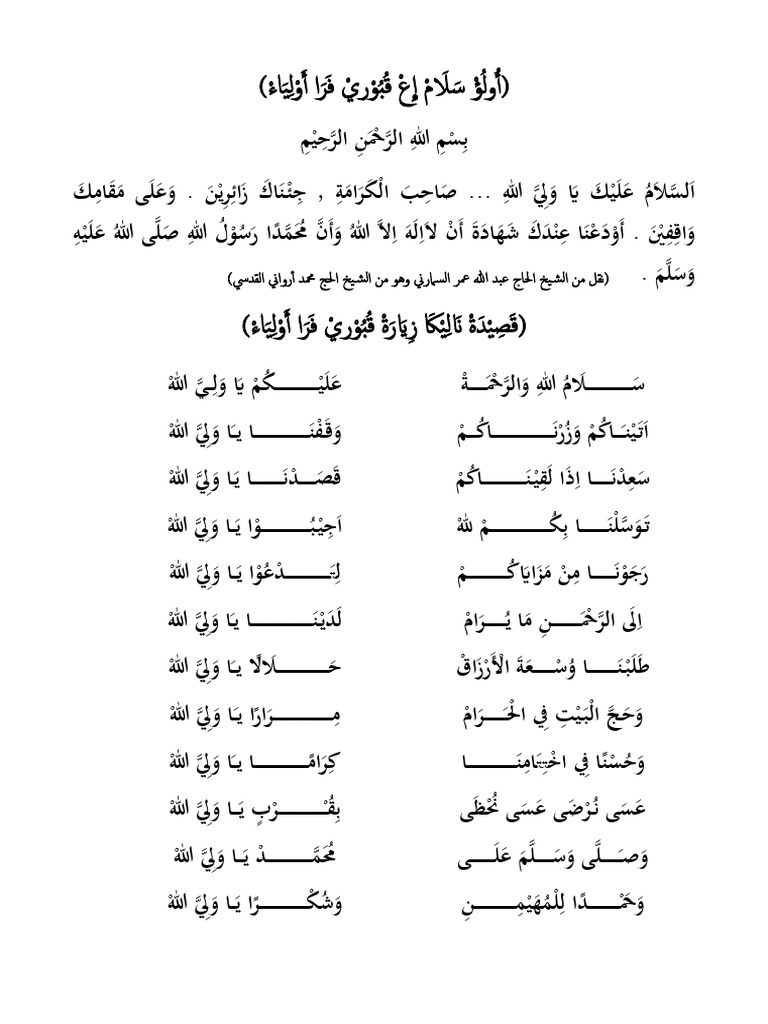 (أُولُوْ سَلَامْ إِعْ قُبُوْرِيْ فَرَا أَوْلِيَاءْ)
بِسْمِ اللهِ الرَّحْمَنِ الرَّحِيْمِ
اَلسَّلاَمُ عَلَيْكَ يَا وَلِيَّ اللهِ ... صَاحِبَ الْكَرَامَةِ , جِئْنَاكَ زَائِرِيْنَ . وَعَلَى مَقَامِكَ
وَاقِفِيْنَ . أَوْدَعْنَا عِنْدَكَ شَهَادَةَ أَنْ لاَاِلَهَ اِلاَّ اللهُ وَأَنَّ مُحَمَّدًا رَسُوْلُ اللهِ صَلَّى اللهُ عَلَيْهِ
وَسَلَّمَ . (نقل من الشيخ الحاج عبد الله عمر السمارني وهو من الشيخ الحج محمد أرواني القدسي)
(قَصِيْدَةْ نَالِيْكَا زِيَارَةْ قُبُوْرِيْ فَرَا أَوْلِيَاءْ)
سَــلَامُ اللهِ وَالرَّحْمَــةْ عَلَيْــكُمْ يَا وَلِيَّ اللهْ
اَتَيْنَــاكُمْ وَزُرْنَــاكُــمْ وَقَفْنَــا يَا وَلِيَّ اللهْ
سَعِدْنَــا اِذَا لَقِيْنَــاكُمْ قَصَــدْنَــا يَا وَلِيَّ اللهْ
تَوَسَّلْنَــا بِكُــمْ للهْ اَجِيْبُــوْا يَا وَلِيَّ اللهْ
رَجَوْنَــا مِنْ مَزَايَاكُــمْ لِتَــدْعُوْا يَا وَلِيَّ اللهْ
اِلَى الرَّحْمَــنِ مَا يُــرَامْ لَدَيْنَــا يَا وَلِيَّ اللهْ
طَلَبْنَــا وُسْــعَةَ الْأَرْزَاقْ حَــلَالًا يَا وَلِيَّ اللهْ
وَحَجَّ الْبَيْتِ فِي الْحَــرَامْ مِــرَارًا يَا وَلِيَّ اللهْ
وَحُسْنًا فِي اخْتِتَامِنَــا كِرَامًــا يَا وَلِيَّ اللهْ
عَسَى نُرْضَى عَسَى نُحْظَى بِقُــرْبٍ يَا وَلِيَّ اللهْ
وَصَــلَّى وَسَــلَّمَ عَلَــى مُحَمَّــدْ يَا وَلِيَّ اللهْ
وَحَمْــدًا لِلْمُهَيْمِــنِ وَشُكْــرًا يَا وَلِيَّ اللهْ